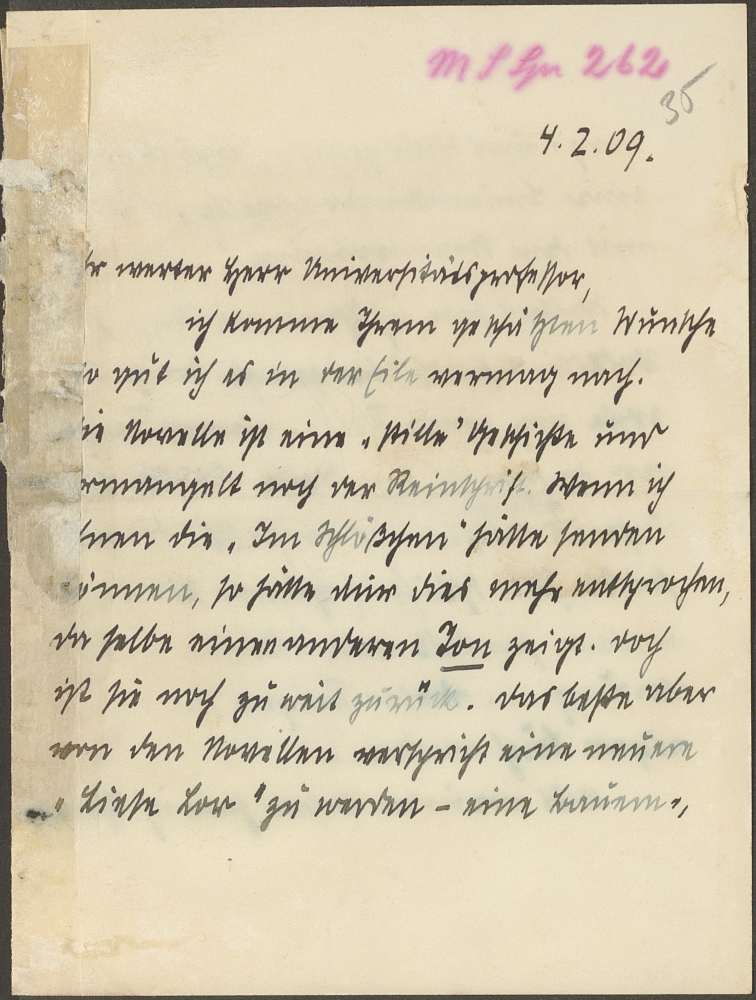 MS Gr 262
35
4. 2. 09.
hr werter Herr Universitätsprofessor,
ich komme Ihrem geschätzten Wunsche
so gut ich es in der Eile vermag nach.
Die Novelle ist eine „stille" Geschichte und
ermangelt noch der Reinschrift. Wenn ich
Ihnen die „Im Schlößchen" hätte senden
können, so hätte mir dies mehr entsprochen,
da selbe einen anderen Ton zeigt. doch
ist sie noch zu weit zurück. das beste aber
von den Novellen verspricht eine neuere
„Liese Lor" zu werden – eine Bauern-,